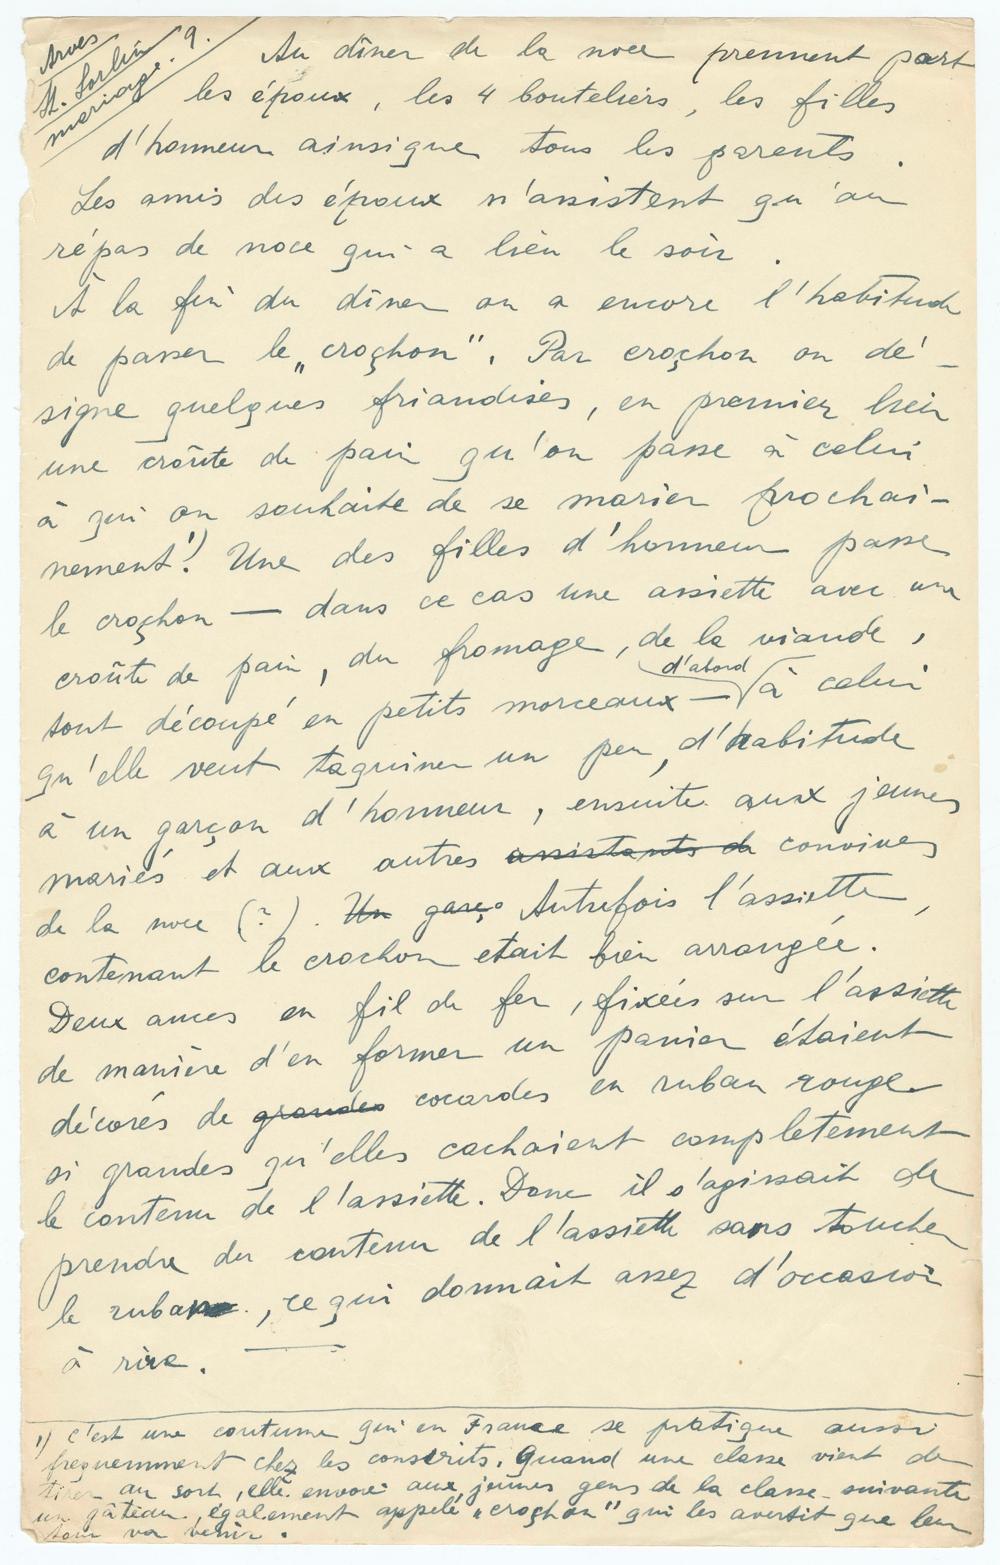 Arves
St. Sorlin
mariage. 9.
Au dîner de la noce prennent part
les époux, les 4 bouteliers, les filles
d'honneur ainsique tous les parents.
Les amis des époux n'assistent qu'au
répas de noce qui a lieu le soir.
À la fin du dîner on a encore l'habitude
de passer le „croçhon". Par croçhon on dé-
signe quelques friandises, en premier lieu
une croûte de pain qu'on passe à celui
à qui on souhaite de se marier prochai-
nement.1) Une des filles d'honneur passe
le croçhon — dans ce cas une assiette avec une
croûte de pain, du fromage, de la viande,
tout découpé en petits morceaux — d'abord à celui
qu'elle veut taquiner un peu, d'habitude
à un garçon d'honneur, ensuite aux jeunes
mariés et aux autres assistants de convives
de la noce (?). Un garço Autrefois l'assiette,
contenant le crochon etait bien arrangée.
Deux anses en fil de fer, fixées sur l'assiette
de manière d'en former un panier étaient
décorés de grandes cocardes en ruban rouge
si grandes qu'elles cachaient completement
le contenu de l'assiette. Donc il s'agissait de
prendre du contenu de l'assiette sans toucher
le ruban, ce qui donnait assez d'occasion
à rire. —
1) C'est une coutume qui en France se pratique aussi
frequemment chez les conscrits. Quand une classe vient de
tirer au sort, elle envoie aux jeunes gens de la classe suivante
un gâteau, également appelé „croçhon" qui les avertit que leur
tour va venir.